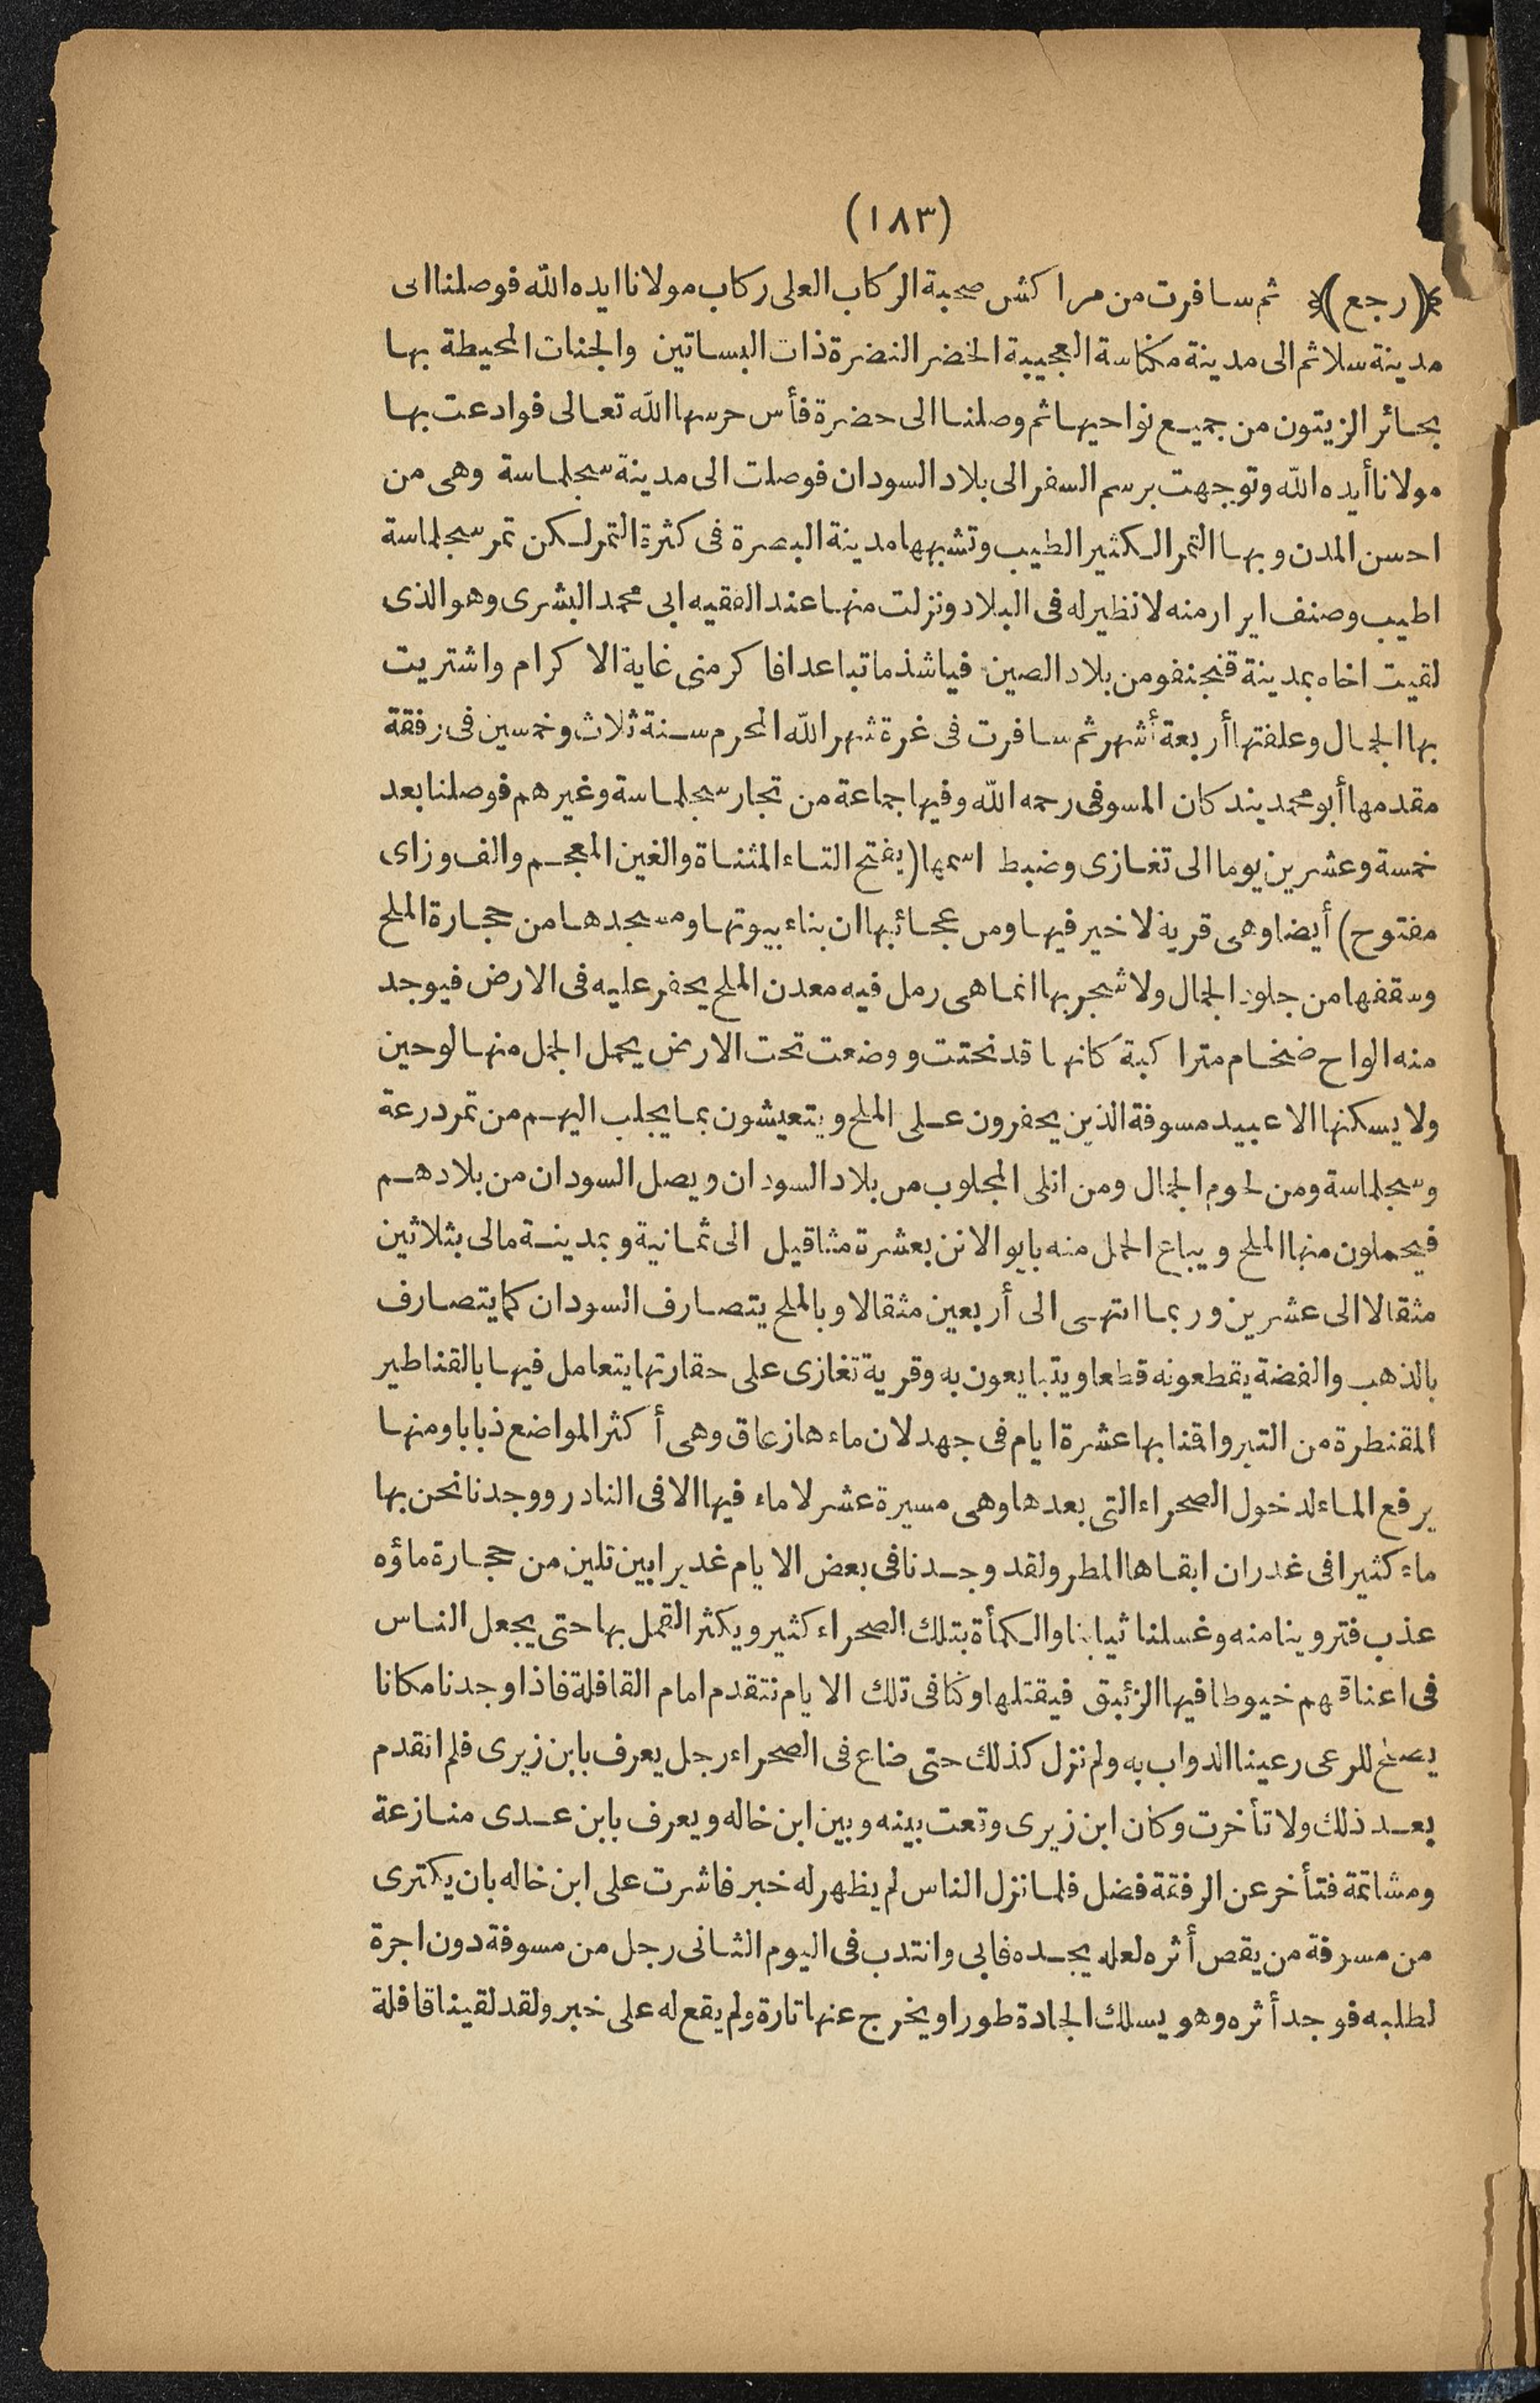 (١٨٣)
﴿(رجع)﴾ ثم سافرت من مراكش صحبة الركاب العلى ركاب مولانا ايده الله فوصلنا الى
مدينة سلا ثم الى مدينة مكناسة العجيبة الخضر النضرة ذات البساتين والجنات المحيطة بها
بحائر الزيتون من جميع نواحيها ثم وصلنا الى حضرة فأس حرسها الله تعالى فوادعت بها
مولانا أيده الله وتوجهت برسم السفر الى بلاد السودان فوصلت الى مدينة سجلماسة وهى من
احسن المدن وبها التمر الكثير الطيب وتشبهها مدينة البصرة فى كثرة التمر لكن تمر سجلماسة
اطيب وصنف ايرار منه لا نظير له فى البلاد ونزلت منها عند الفقيه ابى محمد البشرى وهو الذى
لقيت اخاه بمدينة قنجنفو من بلاد الصين فيا شذ ما تباعدا فاكرمنى غاية الاكرام واشتريت
بها الجمال وعلفتها أربعة أشهر ثم سافرت فى غرة شهر الله المحرم سنة ثلاث وخمسين فى رفقة
مقدمها أبو محمد يندكان المسوفى رحمه الله وفيها جماعة من تجار سجلماسة وغيرهم فوصلنا بعد
خمسة وعشرين يوما الى تغازى وضبط اسمها (بفتح التاء المثناة والغين المعجم والف وزاى
مفتوح) أيضا وهى قرية لا خير فيها ومن عجائبها ان بناء بيوتها ومسجدها من حجارة الملح
وسقفها من جلود الجمال ولا شجر بها انما هى رمل فيه معدن الملح يحفر عليه فى الارض فيوجد
منه الواح ضخام متراكبة كانها قد نحتت ووضعت تحت الارض يحمل الجمل منها لوحين
ولا يسكنها الا عبيد مسوفة الذين يحفرون على الملح ويتعيشون بما يجلب اليهم من تمر درعة
وسجلماسة ومن لحوم الجمال ومن انلى المجلوب من بلاد السودان ويصل السودان من بلادهم
فيحملون منها الملح ويباع الحمل منه بايوالاتن بعشرة مثاقيل الى ثمانية وبمدينة مالى بثلاثين
مثقالا الى عشرين وربما انتهى الى أربعين مثقالا وبالملح يتصارف السودان كما يتصارف
بالذهب والفضة يقطعونه قطعا ويتبايعون به وقرية تغازى على حقارتها يتعامل فيها بالقناطير
المقنطرة من التبر واقنا بها عشرة ايام فى جهد لان ماءها زعاق وهى أكثر المواضع ذبابا ومنها
يرفع الماء لدخول الصحراء التى بعدها وهى مسيرة عشر لا ماء فيها الا فى النادر ووجدنا نحن بها
ماء كثيرا فى غدران ابقاها المطر ولقد وجدنا فى بعض الايام غديرا بين تلين من حجارة ماؤه
عذب فتروينا منه وغسلنا ثيابنا والكمأة بتلك الصحراء كثير ويكثر القمل بها حتى يجعل الناس
فى اعناقهم خيوطا فيها الزئبق فيقتلها وكنا فى تلك الايام نتقدم امام القافلة فاذا وجدنا مكانا
يصلح للرعى رعينا الدواب به ولم نزل كذلك حتى ضاع فى الصحراء رجل يعرف بابن زيرى فلم اتقدم
بعد ذلك ولا تأخرت وكان ابن زيرى وقعت بينه وبين ابن خاله ويعرف بابن عدى منازعة
ومشاتمة فتأخر عن الرفقة فضل فلما نزل الناس لم يظهر له خبر فاشرت على ابن خاله بان يكترى
من مسوفة من يقص أثره لعله يجده فابى وانتدب فى اليوم الثانى رجل من مسوفة دون اجرة
لطلبه فوجد أثره وهو يسلك الجادة طورا ويخرج عنها تارة ولم يقع له على خبر ولقد لقينا قافلة